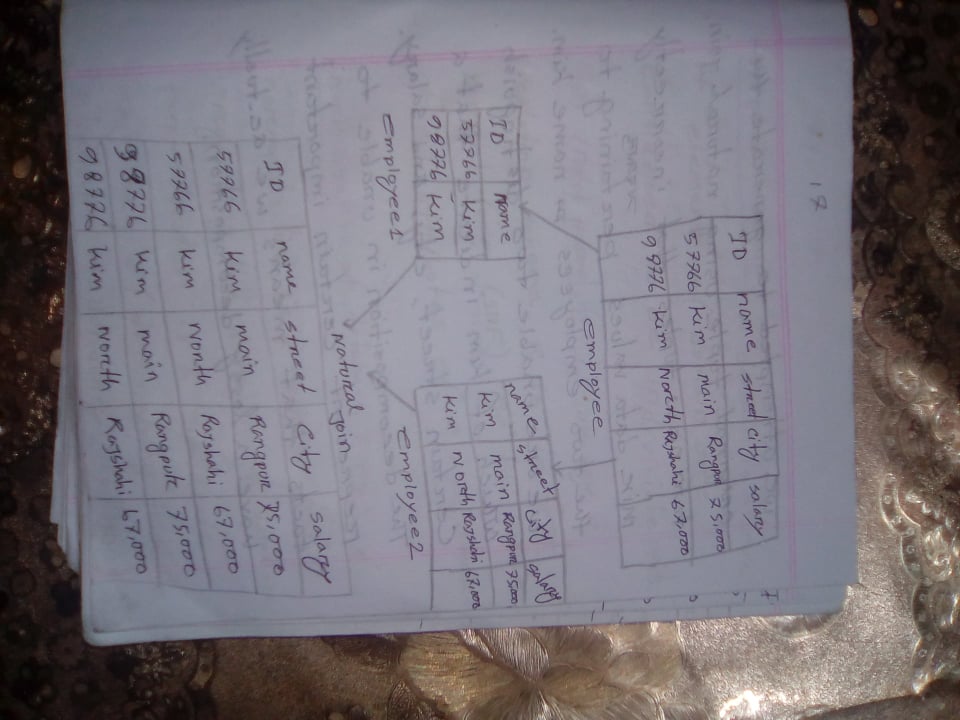 17
ID name street city salary
57766 Kim main Rangpur 75,000
98776 Kim North Rajshahi 67,000
employee
ID name
57766 Kim
98776 Kim
employee1
name street city salary
Kim main Rangpur 75000
Kim North Rajshahi 67,000
employee2
Natural join
ID name street City salary
57766 Kim main Rangpur 75,000
57766 Kim North Rajshahi 67,000
98776 Kim main Rangpur 75,000
98776 Kim North Rajshahi 67,000